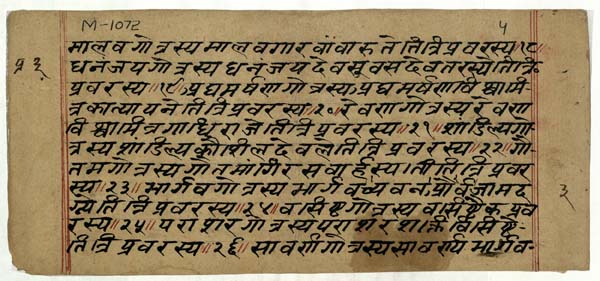 M-1072
५
मालवगोत्रस्य मालवगार वांवारुतेतित्रिप्रवरस्य॥१८॥
धनंजयगोत्रस्य धनंजय देवसूवसदेवतरस्येतित्रि
प्रवरस्य॥१९॥ प्रघमर्षणगोत्रस्य प्रघमर्षण विश्वामि
त्रकात्यायनेतित्रिप्रवरस्य॥२०॥ रेवणगोत्रस्य रेवण
विश्वामित्रगाधिराजेतित्रिप्रवरस्य॥२१॥ शांडिल्यगो
त्रस्य शांडिल्य कौशिल देवलेतित्रिप्रवरस्य॥२२॥ गौ
तमगोत्रस्य गौतमांगिरस त्रिप्रवर
स्य॥२३॥ भार्गवगोत्रस्य भार्गवच्यवन जामद
ग्न्येतित्रिप्रवरस्य॥२४॥ वासिष्टगोत्रस्य वासिष्टैकप्रव
रस्य॥२५॥ पराशरगोत्रस्य पराशर शाक्ति वासिष्टे
तित्रिप्रवरस्य॥२६॥ सावर्णगोत्रस्य सावर्ण्य भार्गव
३